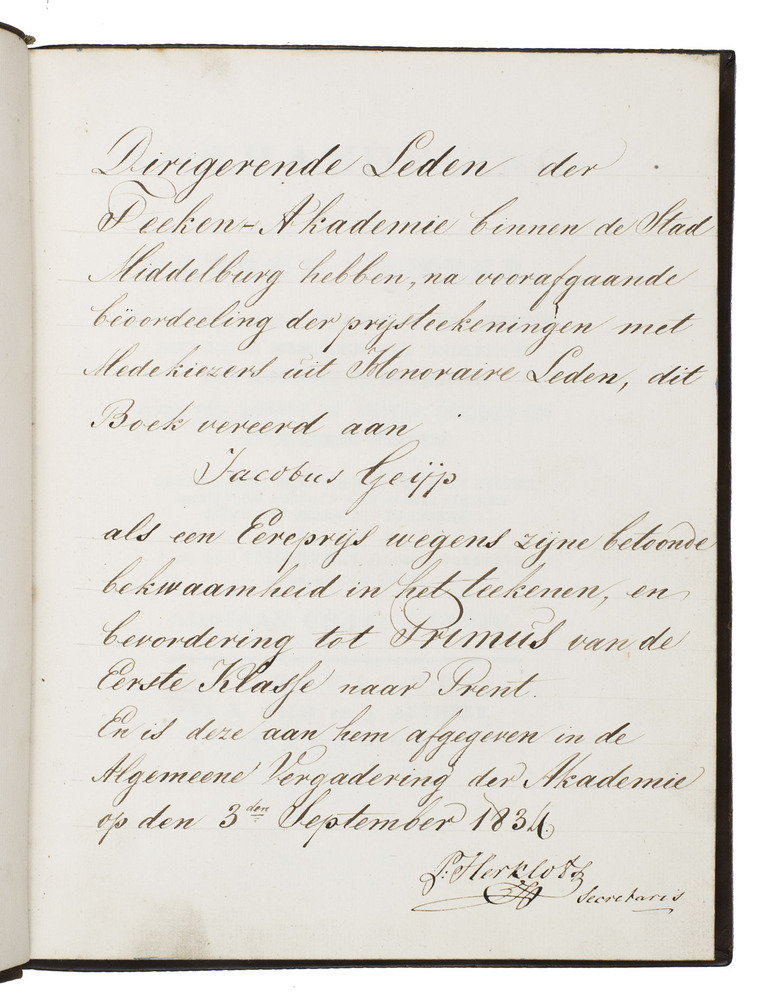 Dirigerende Leden der
Teeken-Akademie binnen de Stad
Middelburg hebben, na voorafgaande
beoordeeling der prijsteekeningen met
Medekiezers uit Honoraire Leden, dit
Boek vereerd aan
Jacobus Geijp
als een Eereprijs wegens zijne betoonde
bekwaamheid in het teekenen, en
bevordering tot Primus van de
Eerste Klasse naar Prent.
En is deze aan hem afgegeven in de
Algemeene Vergadering der Akademie
op den 3den September 1834.
P: Herklots
Secretaris